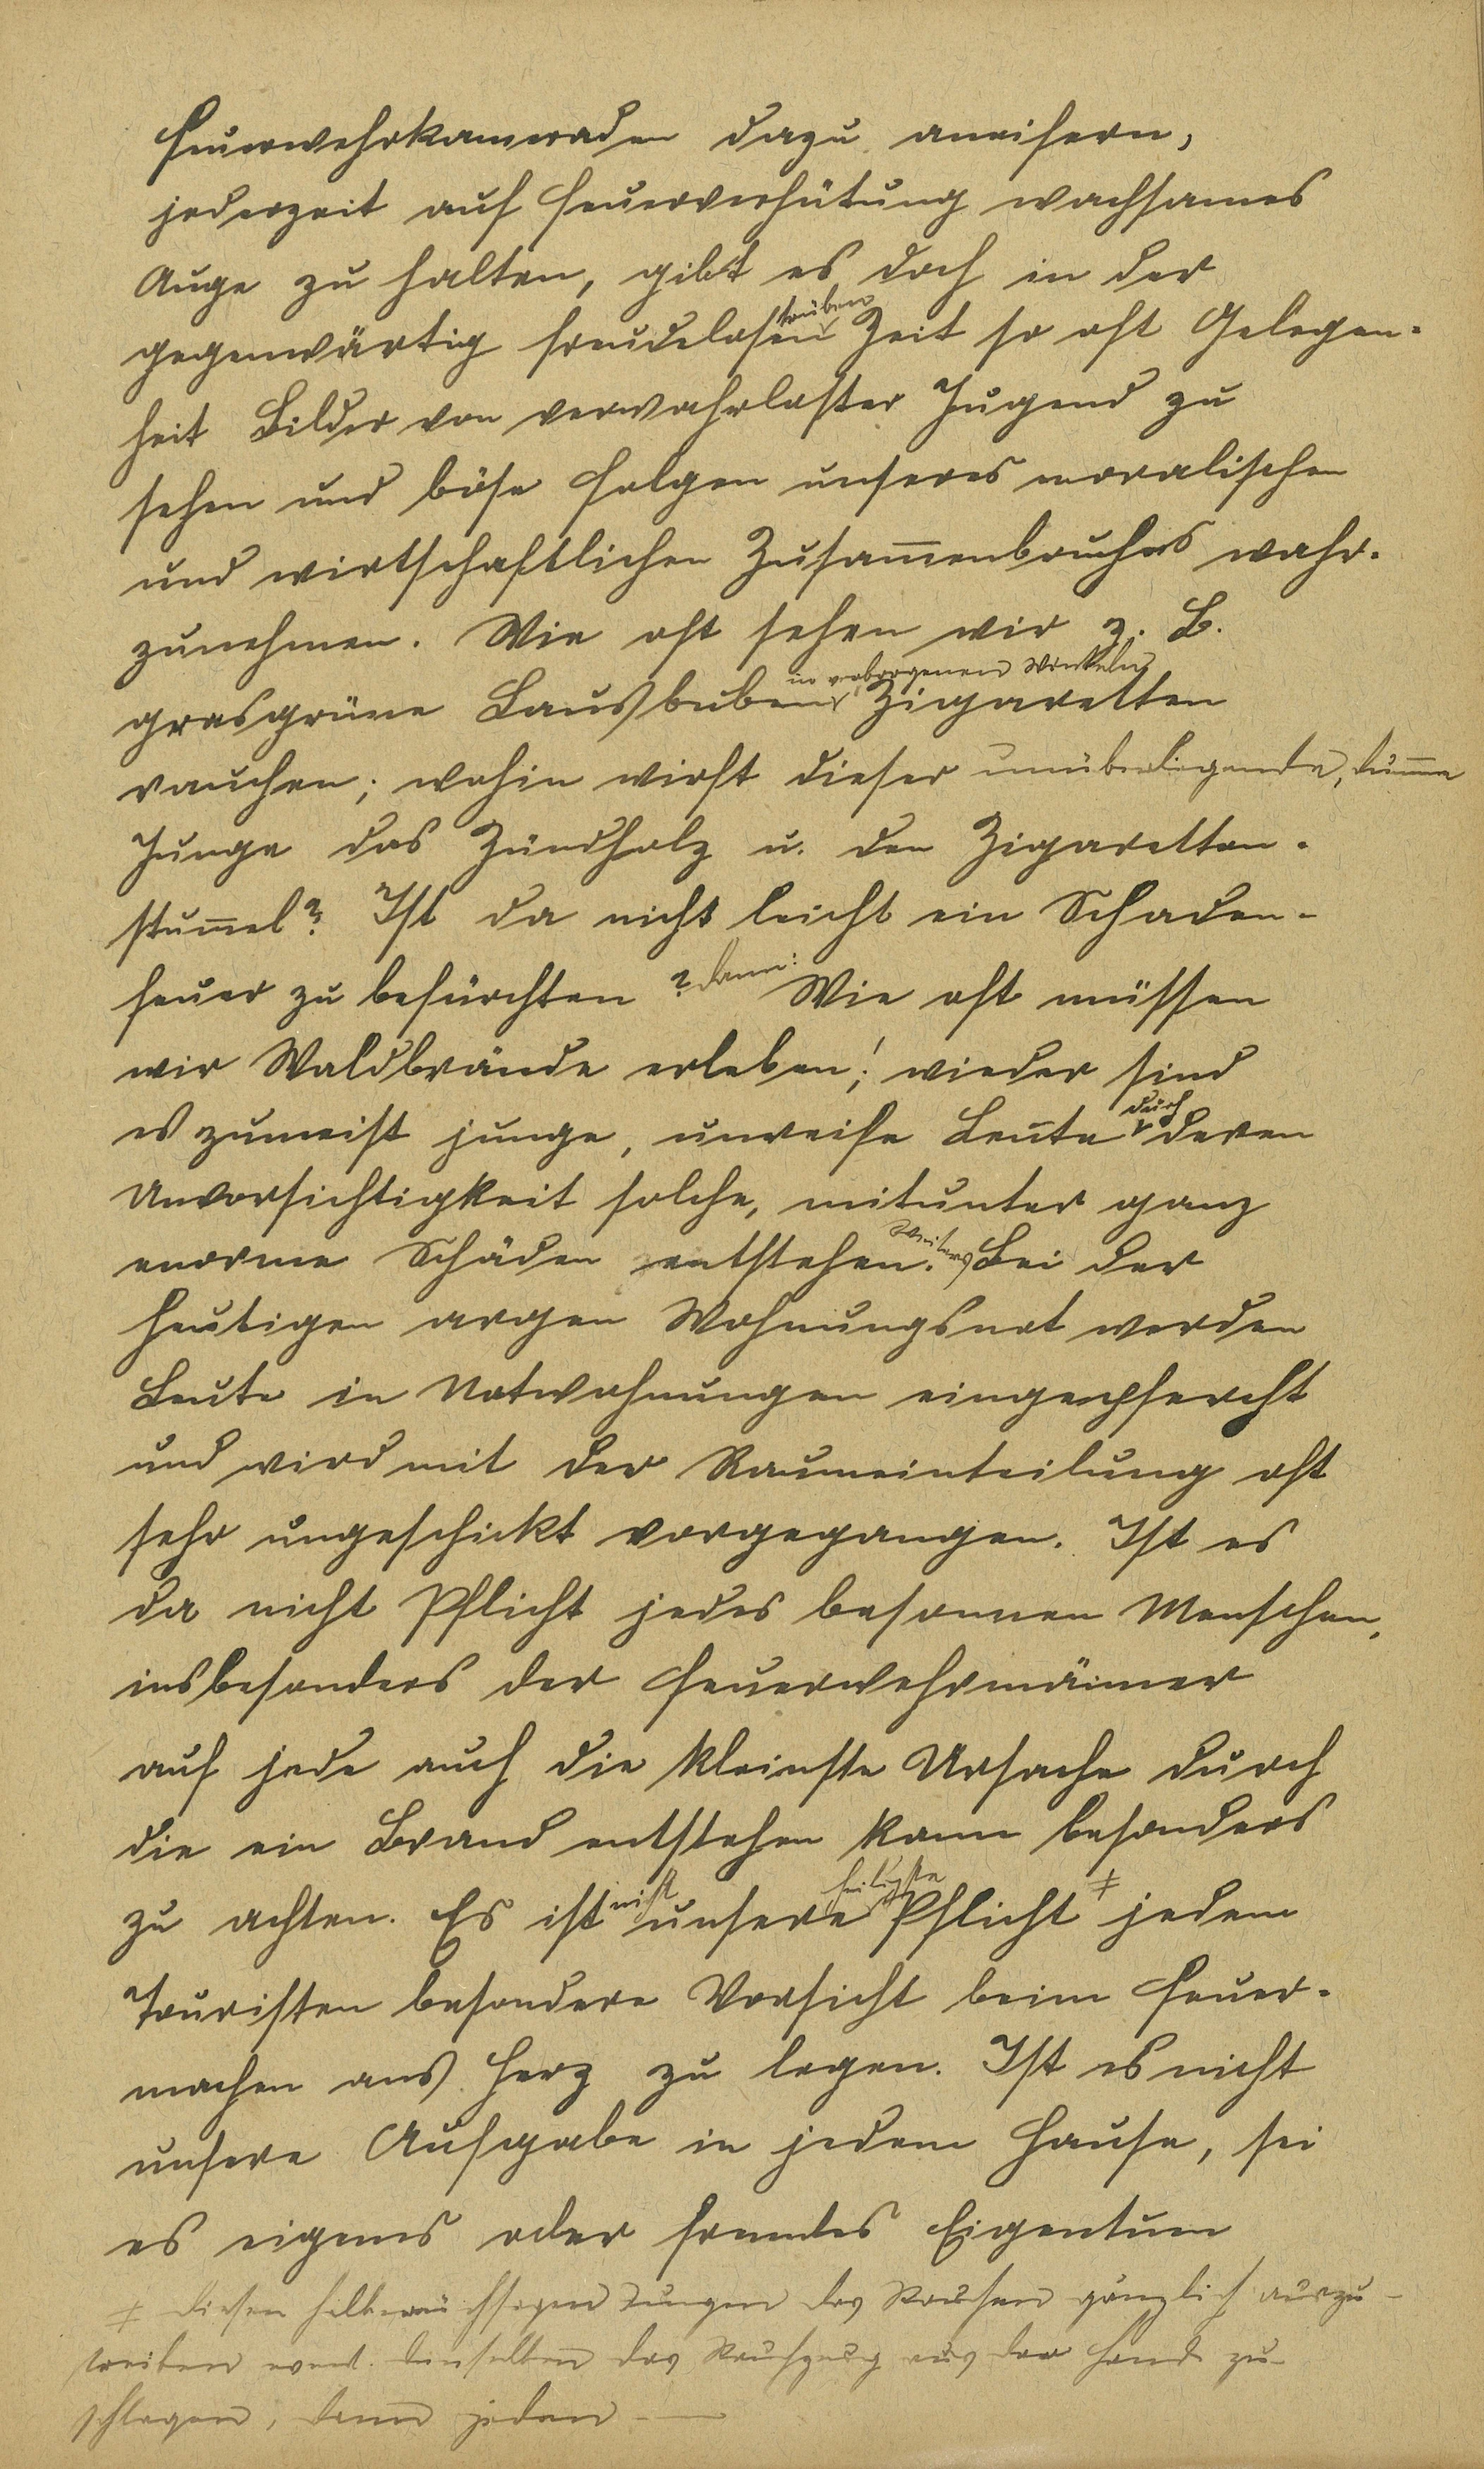 Feuerwehrkameraden dazu aneifern,
jederzeit auf Feuerverhütung wachsames
Auge zu halten, gibt es doch in der
trüben
gegenwärtig freudelosen Zeit so oft Gelegen-
heit Bilder von verwahrloster Jugend zu
sehen und böse Folgen unseres moralischen
und wirtschaftlichen Zusam̅enbruches wahr-
zunehmen. Wie oft sehen wir z. B.
in verborgenen Winkeln
grasgrüne Lausbuben Zigaretten
rauchen; wohin wirft dieser unüberlegende, dum̅e
Junge das Zündholz u. den Zigaretten-
stum̅el? Ist da nicht leicht ein Schaden-
feuer zu befürchten? dann: Wie oft müssen
wir Waldbrände erleben! wieder sind
durch
es zumeist junge, unreife Leute deren
Unvorsichtigkeit solche, mitunter ganz
weiters
enorme Schäden entstehen. Bei der
heutigen argen Wohnungsnot werden
Leute in Notwohnungen eingepfercht
und wird mit der Raumeinteilung oft
sehr ungeschickt vorgegangen. Ist es
da nicht Pflicht jedes besonnen Menschen,
insbesonders der Feuerwehrmänner
auf jede auch die kleinste Ursache durch
die ein Brand entstehen kann besonders
nicht heiligste ‡
zu achten. Es ist unsere Pflicht jedem
Touristen besondere Vorsicht beim Feuer-
machen ans Herz zu legen. Ist es nicht
unsere Aufgabe in jedem Hause, sei
es eigenes oder fremdes Eigentum
‡ diesen halberwüchsigen Jungen das Rauchen gänzlich auszu-
treiben event. denselben das Rauchzeug aus der Hand zu
schlagen, dann jedem —